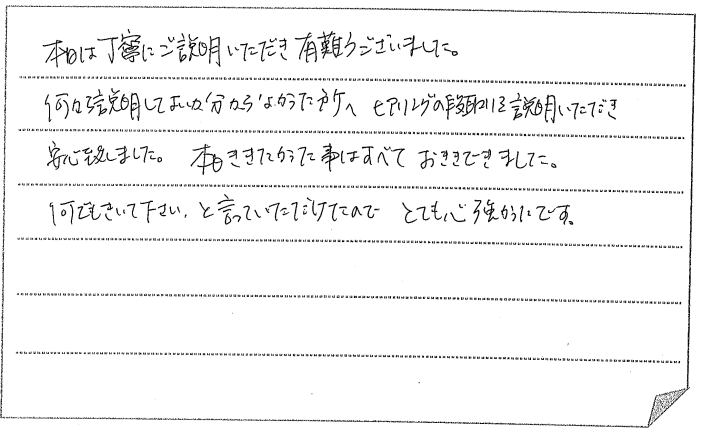 本日は丁寧にご説明いただき有難うございました。
何から説明してよいか分からなかった所へ ヒアリングの段取りを説明いただき
安心致しました。 本日ききたかった事はすべて おききできました。
何でもきいて下さい、と言っていただけたので とても心強かったです。